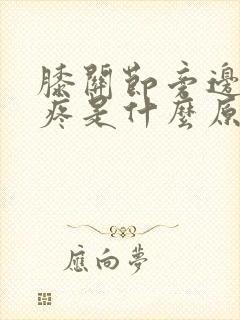 膝關節旁邊
疼是什麼原
應向夢